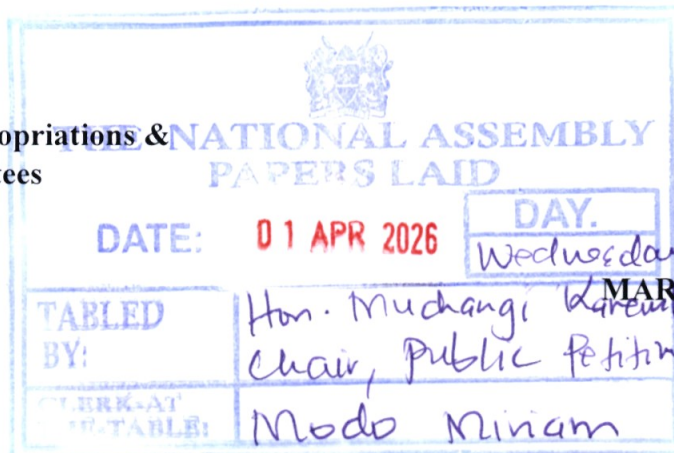 opriations &
tees
THE NATIONAL ASSEMBLY
PAPERS LAID
DATE: 01 APR 2026
DAY.
Wednesda
MAR
TABLED BY: Hon. Muchangi Karemi
Chair, Public Petitin
CLERK-AT THE-TABLE: Modo Miriam